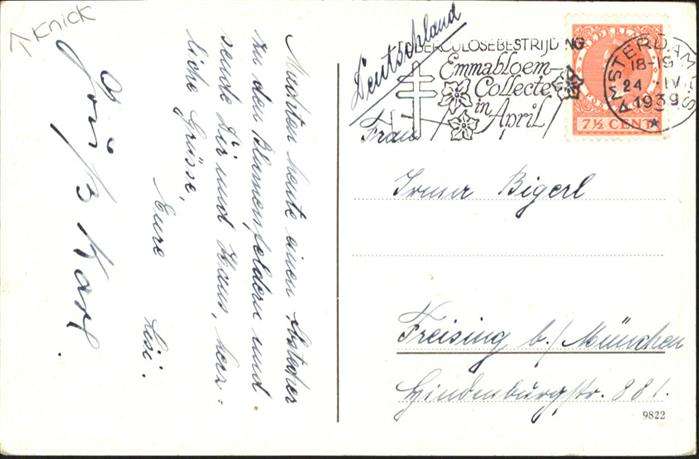 Knick
Machten heute einen Abstecher
zu den Blumenfeldern und
sende Dir und Hans, herz-
liche Grüsse,
Eure
Lisi.
Karl.
Deutschland
TUBERCULOSEBESTRIJDING
Emmabloem-
Collecte
in April
AMSTERDAM
18-19
24 IV
1939
NEDERLAND
7½ CENT
Frau
Irma Bigerl
Freising b./München
Hindenburgstr. 881.
9822